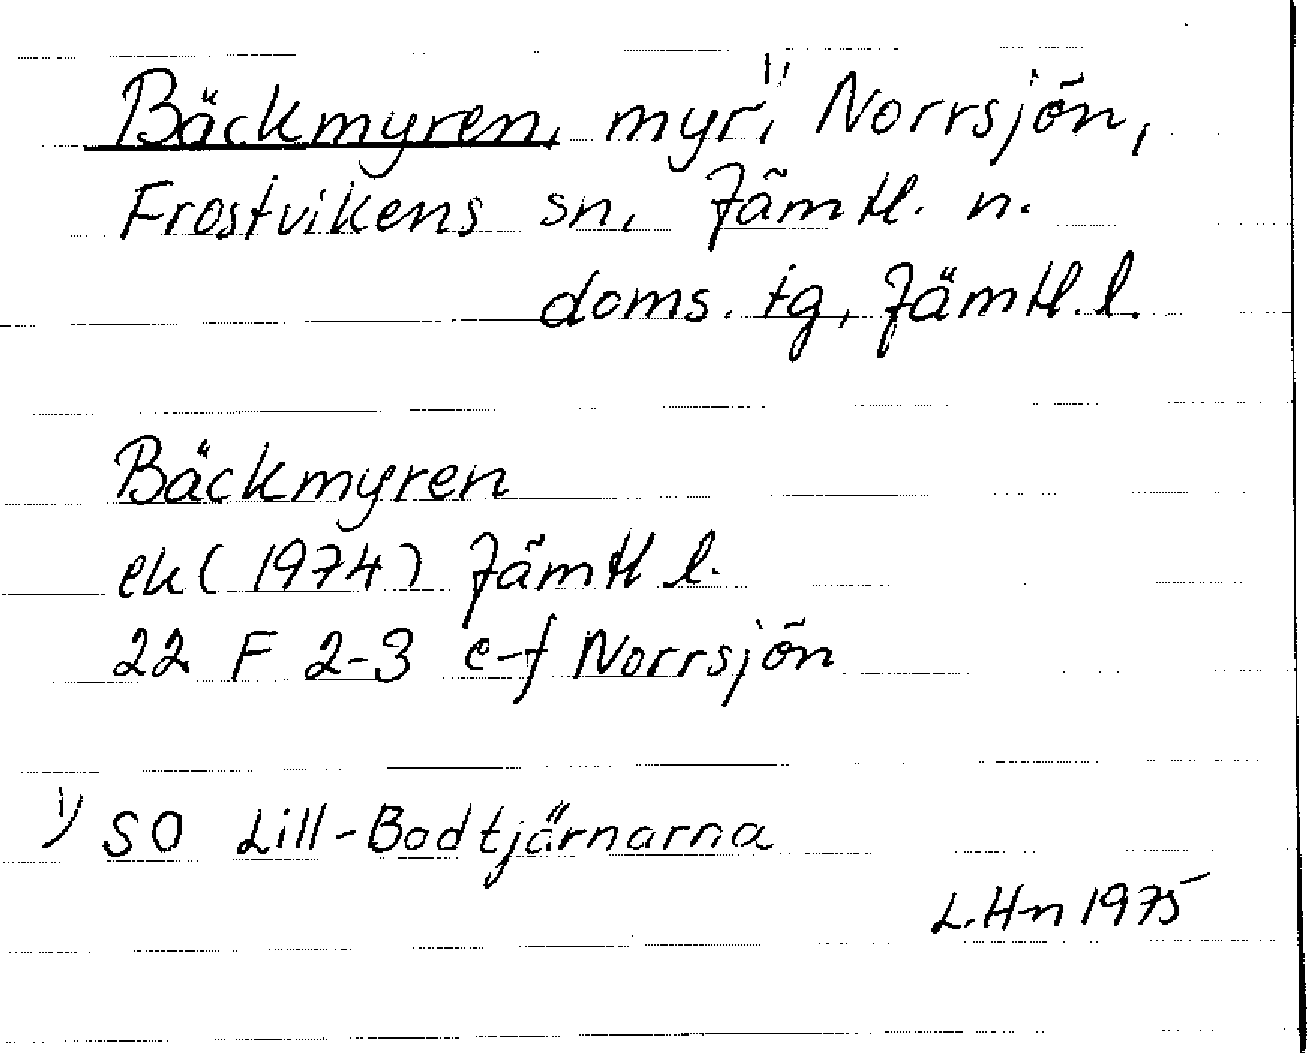 Bäckmyren, myr,¹⁾ Norrsjön,
Frostvikens sn, Jämtl. n.
doms. tg, Jämtl. l.
Bäckmyren
ek (1974) Jämtl l.
22 F 2-3 e-f Norrsjön
¹⁾ SO Lill-Bodtjärnarna
L.Hn 1975